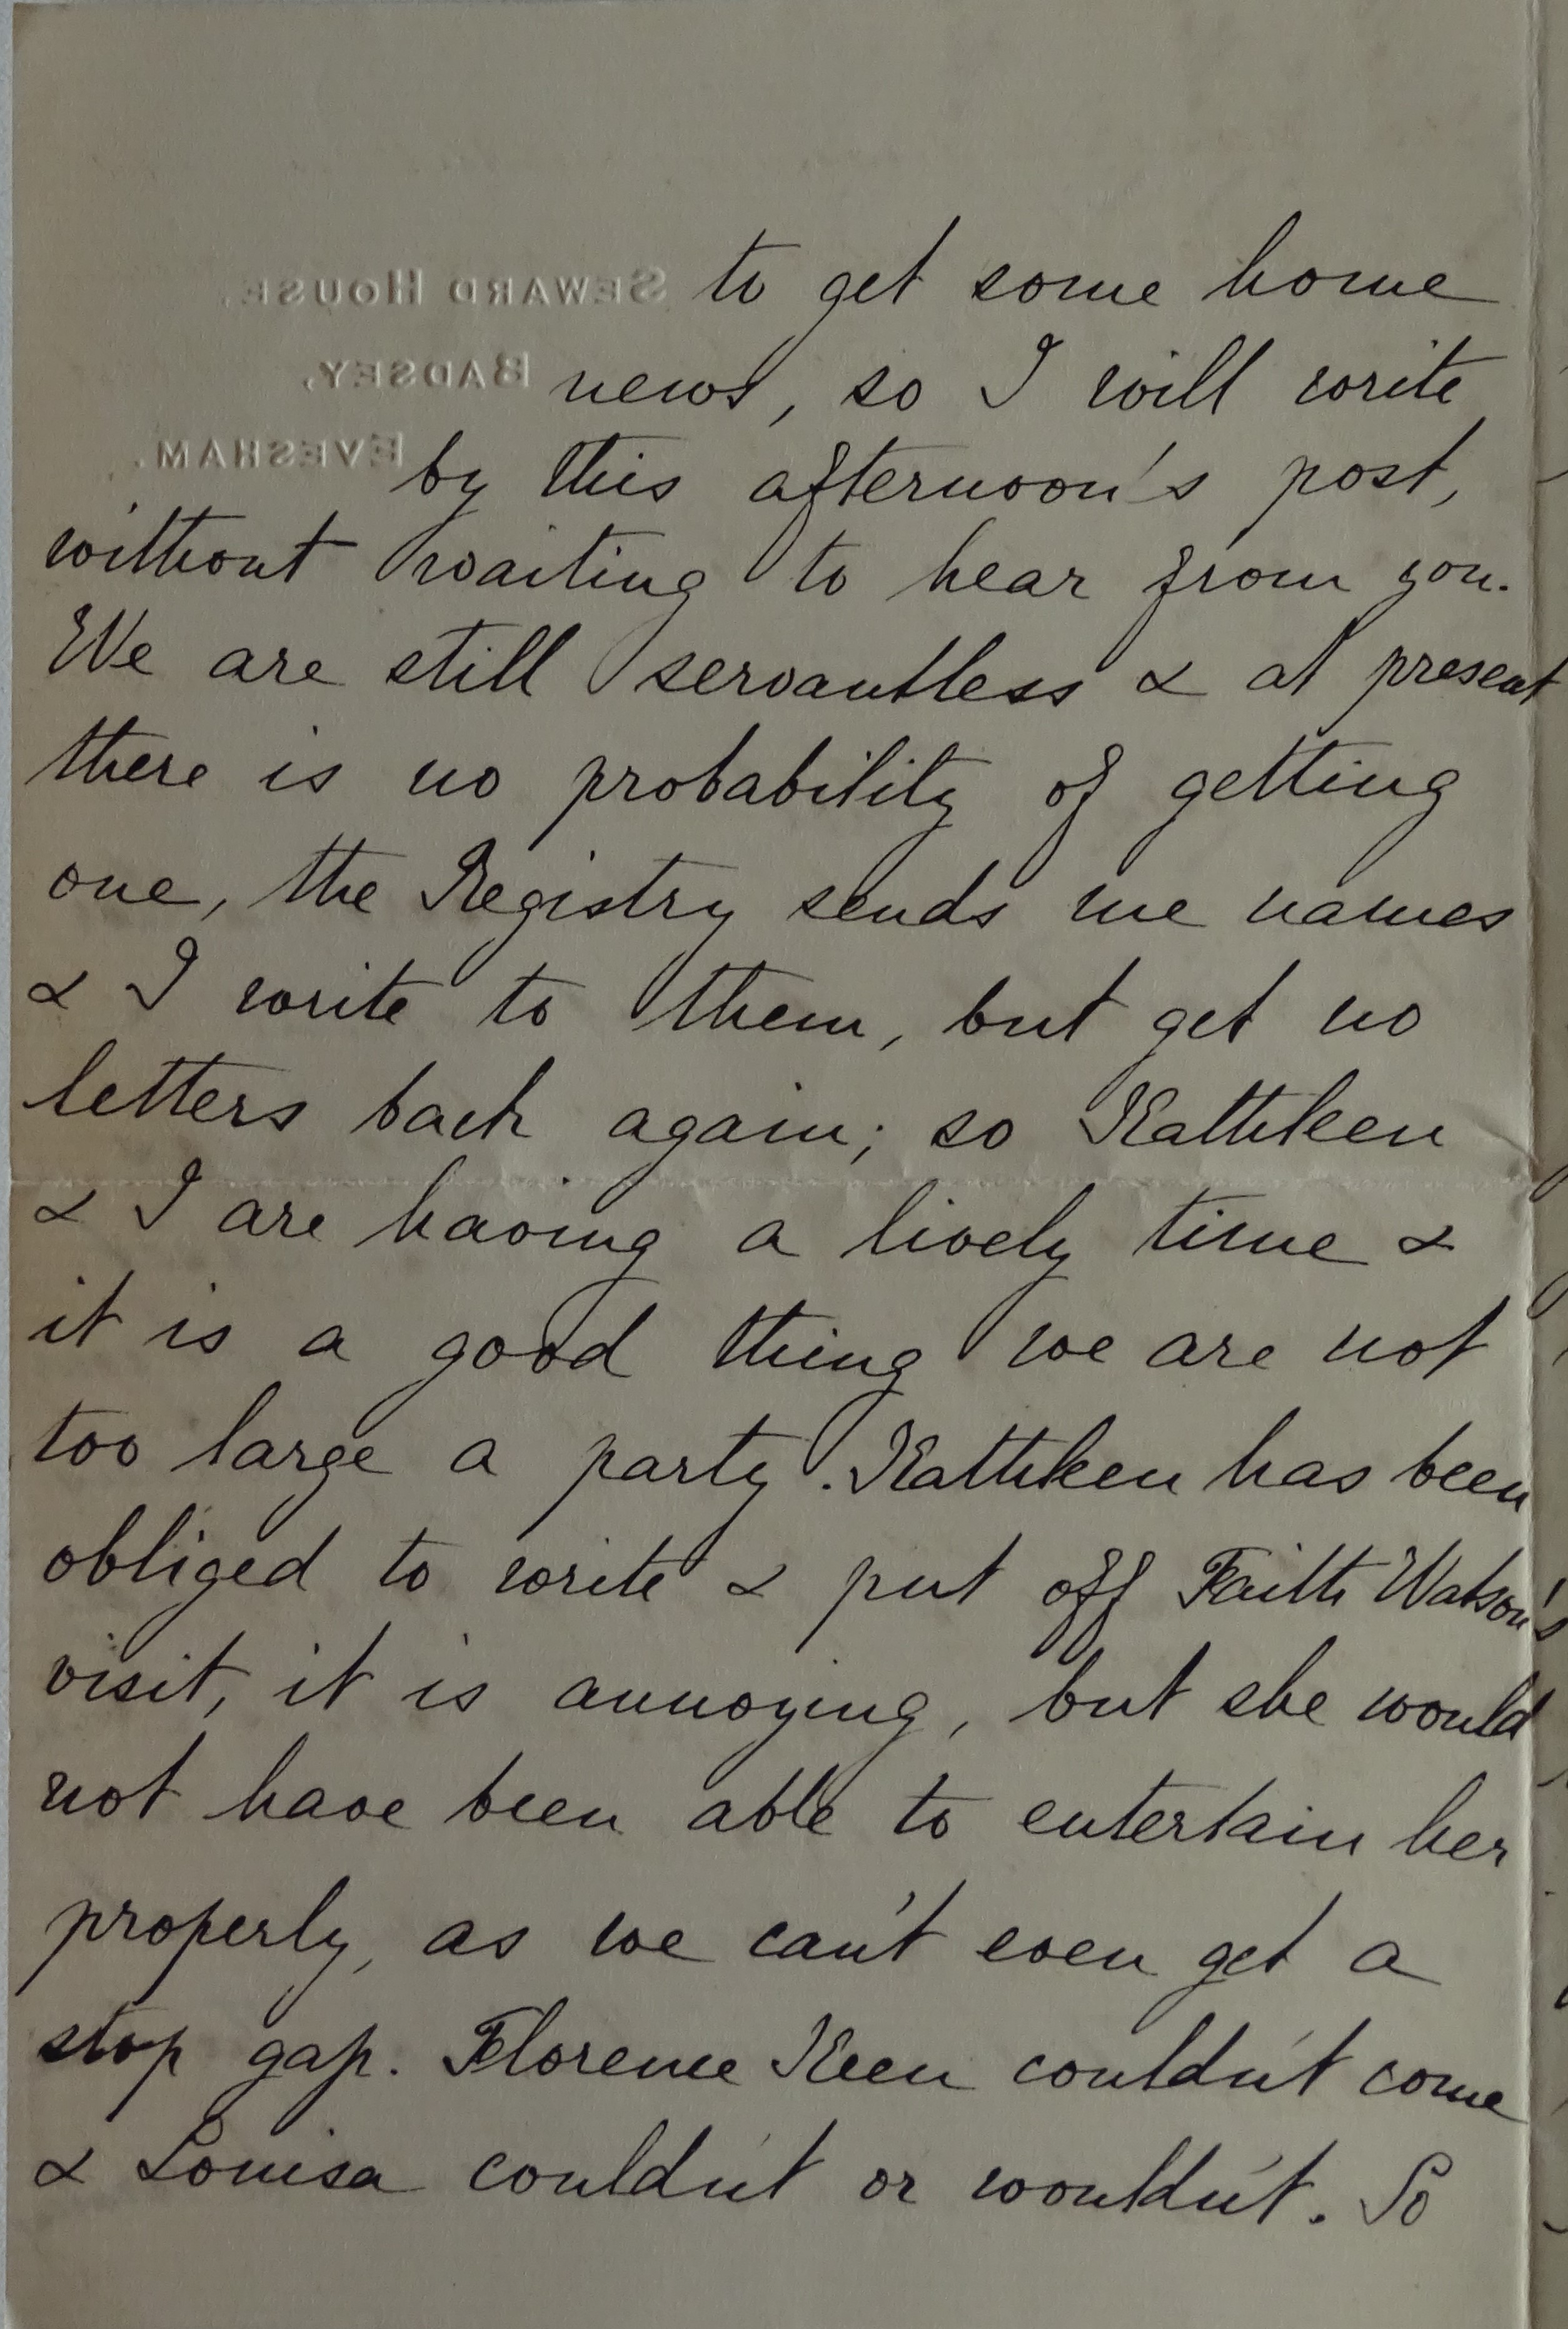 SEWARD HOUSE,
BADSEY,
EVESHAM.
to get some home
news, so I will write
by this afternoon's post,
without waiting to hear from you.
We are still servantless & at present
there is no probability of getting
one, the Registry sends me names
& I write to them, but get no
letters back again; so Kathleen
& I are having a lively time &
it is a good thing we are not
too large a party. Kathleen has been
obliged to write & put off Faith Watson's
visit, it is annoying, but she would
not have been able to entertain her
properly, as we can't even get a
stop gap. Florence Keen couldn't come
& Louisa couldn't or wouldn't. So